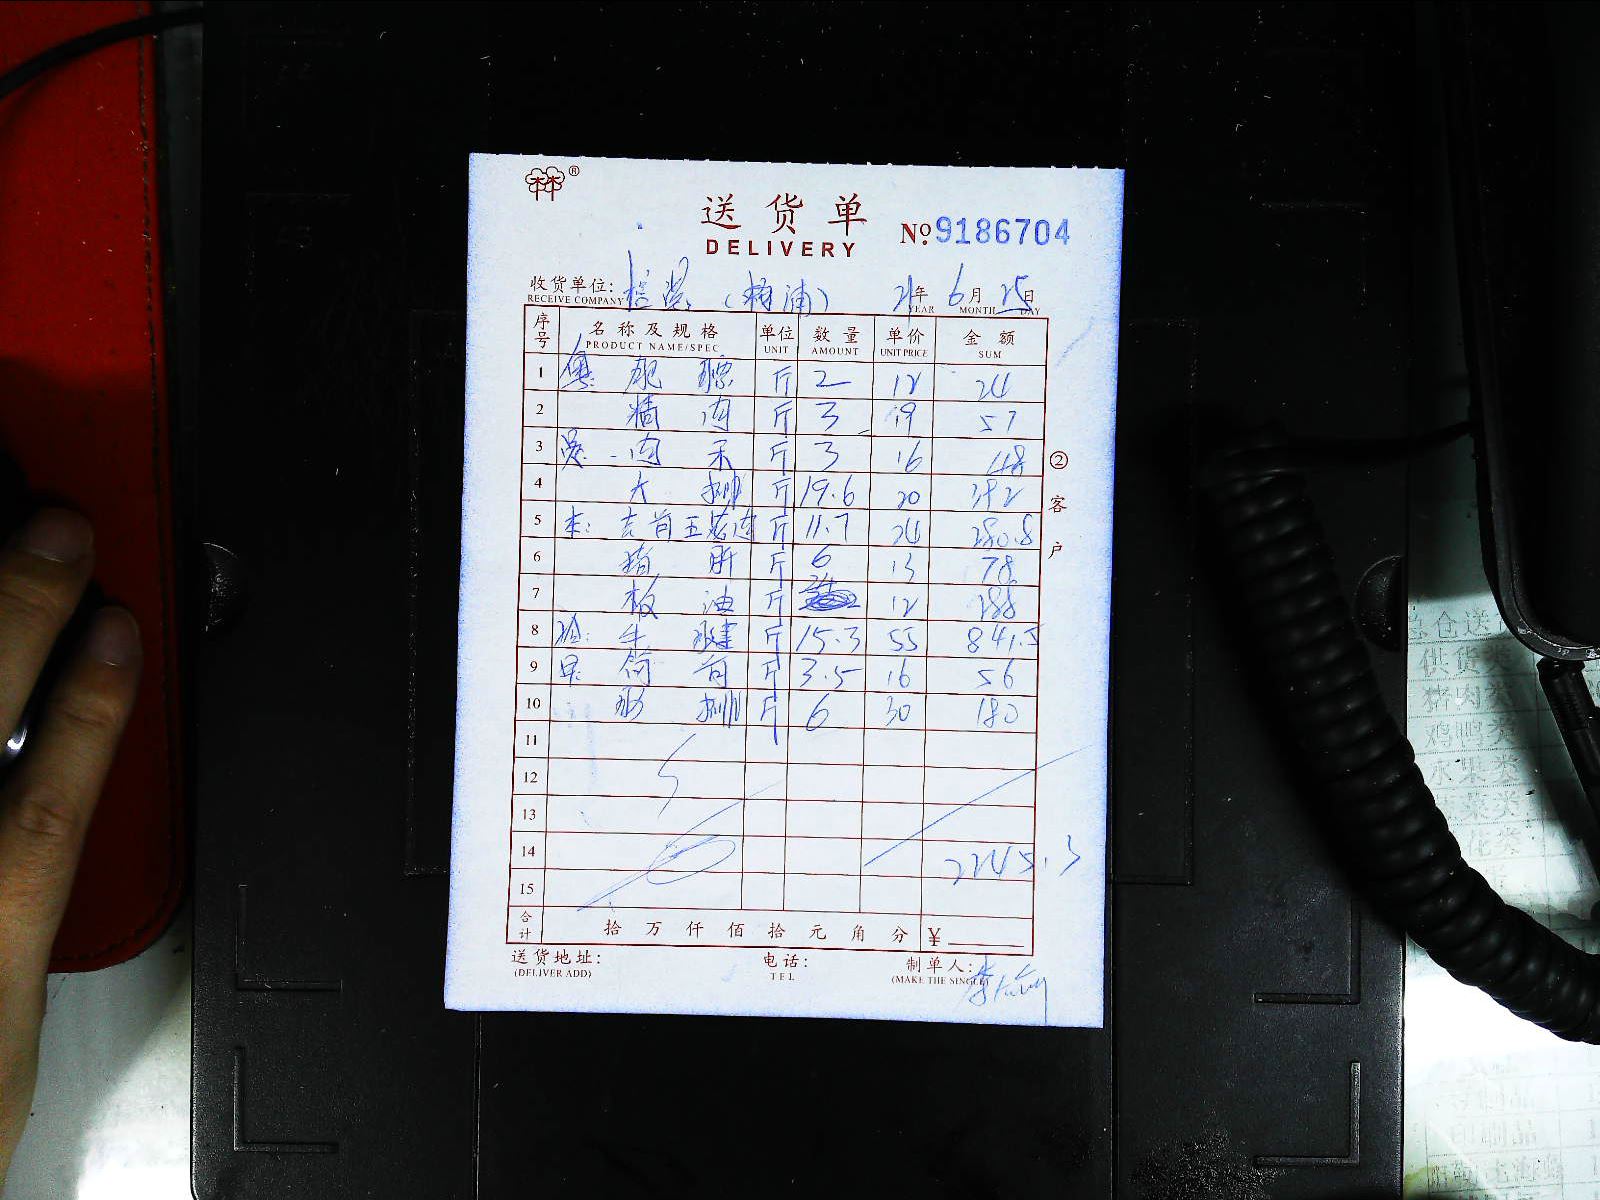 林®
送货单 №9186704
DELIVERY
收货单位: (楊浦) 21年 6月 25日
RECEIVE COMPANY YEAR MONTH DAY
序号 名称及规格 单位 数量 单价 金额
PRODUCT NAME/SPEC UNIT AMOUNT UNIT PRICE SUM
1 肥膘 斤 2 12 24
2 精肉 斤 3 19 57
3 肉末 斤 3 16 48
4 大排 斤 19.6 20 392
5 去前五花 斤 11.7 24 280.8
6 猪肝 斤 6 13 78
7 板油 斤 24 12 288
8 牛腱 斤 15.3 55 841.5
9 斤 3.5 16 56
10 肋排 斤 6 30 180
11
12
13
14 2245.3
15
合计 拾 万 仟 佰 拾 元 角 分 ¥
送货地址: 电话: 制单人:
(DELIVER ADD) TEL (MAKE THE SINGLE)
②客户
供货类
猪肉类
鸡鸭类
水果类